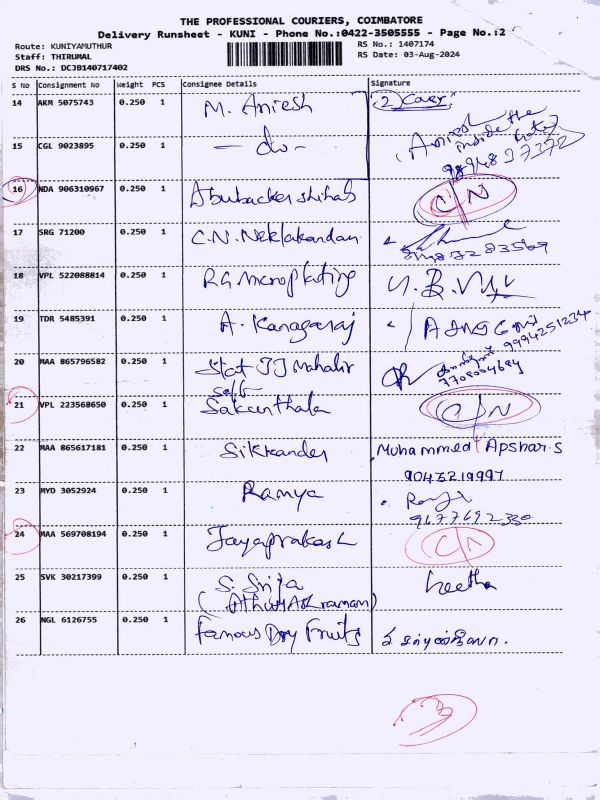 THE PROFESSIONAL COURIERS, COIMBATORE
Delivery Runsheet - KUNI - Phone No.:0422-3505555 - Page No.:2
Route: KUNIYAMUTHUR RS No.: 1407174
Staff: THIRUMAL RS Date: 03-Aug-2024
DRS No.: DCJB140717402
S No Consignment No Weight PCS Consignee Details Signature
14 AKM 5075743 0.250 1 M. Aniesh 2 Cary
15 CGL 9023895 0.250 1 - do - inside the
16 NDA 906310967 0.250 1 Abubackershihab C/N
17 SRG 71200 0.250 1 C.N. Neelakandan
18 VPL 522088814 0.250 1 RG Microplating
19 TDR 5485391 0.250 1 A. Kanagaraj 9994251234
20 MAA 865796582 0.250 1 Stat JJ Mahalir 7708004684
21 VPL 223568650 0.250 1 Sakunthala C/N
22 MAA 865617181 0.250 1 Sikkander Muhammed Apshar.S
9043219997
23 MYD 3052924 0.250 1 Ramya
9677692330
24 MAA 569708194 0.250 1 Jayaprakash C/N
25 SVK 30217399 0.250 1 S. Srija Geetha
26 NGL 6126755 0.250 1 Famous Dry Fruits